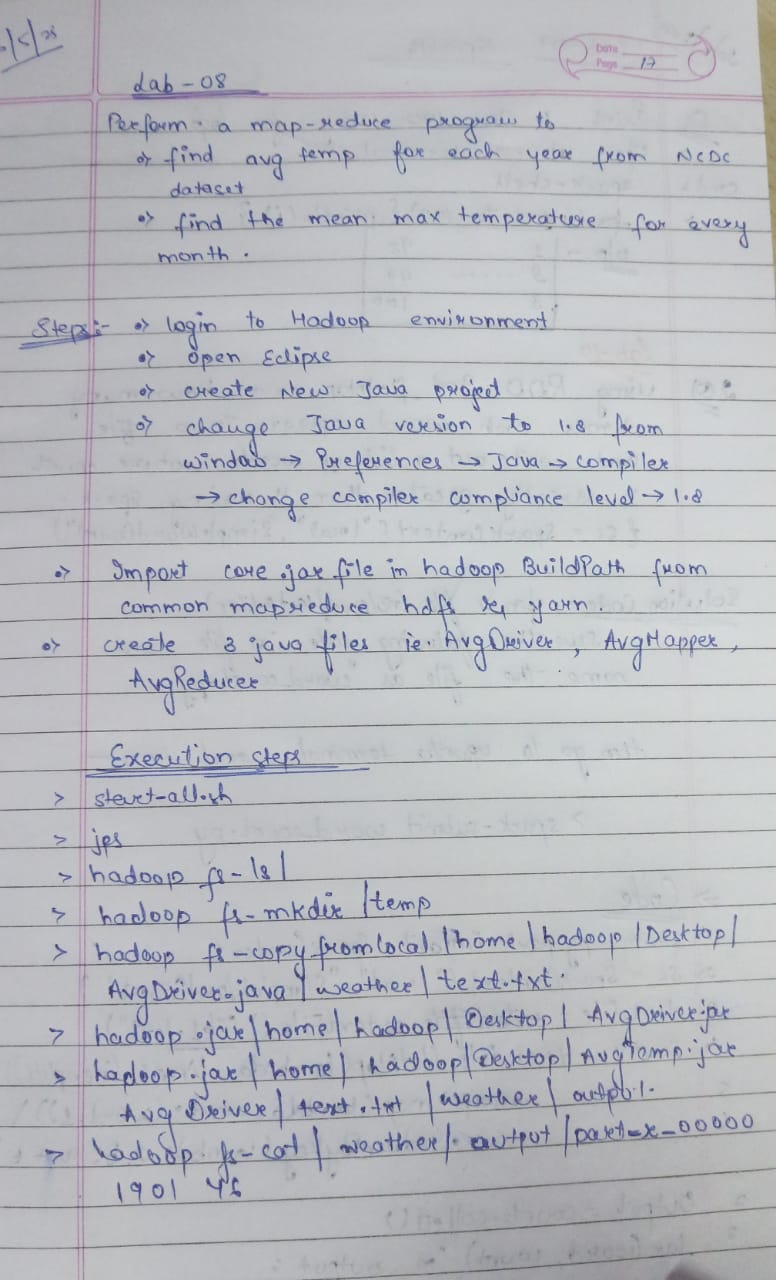 Date
Page 17
Lab-08
Perform a map-reduce program to
•> find avg temp for each year from NCDC
dataset
•> find the mean max temperature for every
month.
Steps:- •> login to Hadoop environment
•> open Eclipse
•> create New Java project
•> change Java version to 1.8 from
window → Preferences → Java → compiler
→ change compiler compliance level → 1.8
•> Import core .jar file in hadoop BuildPath from
common mapreduce hdfs & yarn.
•> create 3 java files ie. AvgDriver, AvgMapper,
AvgReducer
Execution steps
> start-all.sh
> jps
> hadoop fs -ls /
> hadoop fs -mkdir /temp
> hadoop fs -copyfromlocal /home/hadoop/Desktop/
AvgDriver.java/weather/text.txt.
> hadoop .jar/home/hadoop/Desktop/ AvgDriver.jar
> hadoop.jar/home/hadoop/Desktop/AvgTemp.jar
Avg Driver/text.txt /weather/
> hadoop fs-cat/weather/output/part-r-00000
1901 46